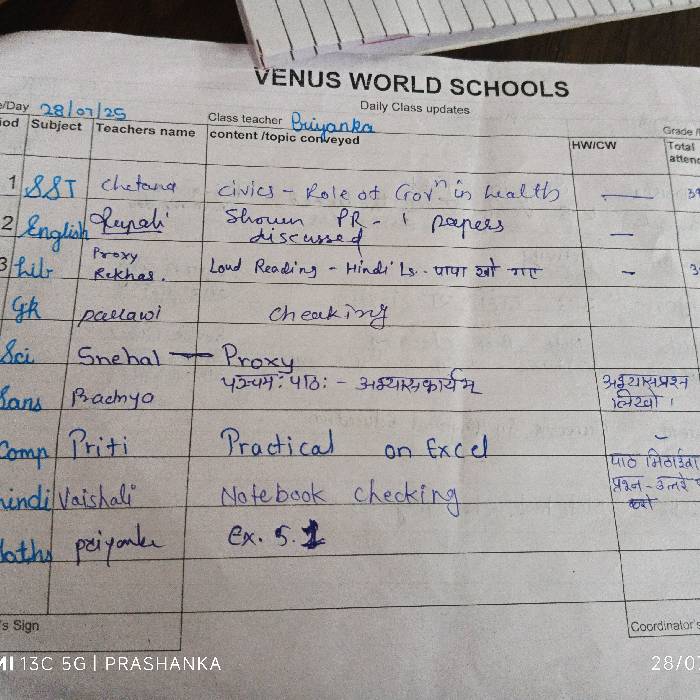 VENUS WORLD SCHOOLS
Daily Class updates
e/Day 28/07/25 Class teacher Priyanka Grade /
iod Subject Teachers name content /topic conveyed HW/CW Total
attend
1 SST Chetana Civics - Role of Govn. in health — 39
2 English Rupali Shown PR - 1 papers
discussed —
3 Lib Proxy
Rekha s. Loud Reading - Hindi Ls. - पापा खो गए - 3
Gk pallawi cheaking
Sci Snehal — Proxy
Sans Pradnya पञ्चमः पाठः - अभ्यासकार्यम् अभ्यासप्रश्न
लिखो।
Comp Priti Practical on Excel -
hindi Vaishali Notebook checking पाठ मिठाईवा
प्रश्न - उत्तरे
करो
Maths priyanka Ex. 5.1
's Sign Coordinator's
MI 13C 5G | PRASHANKA 28/07